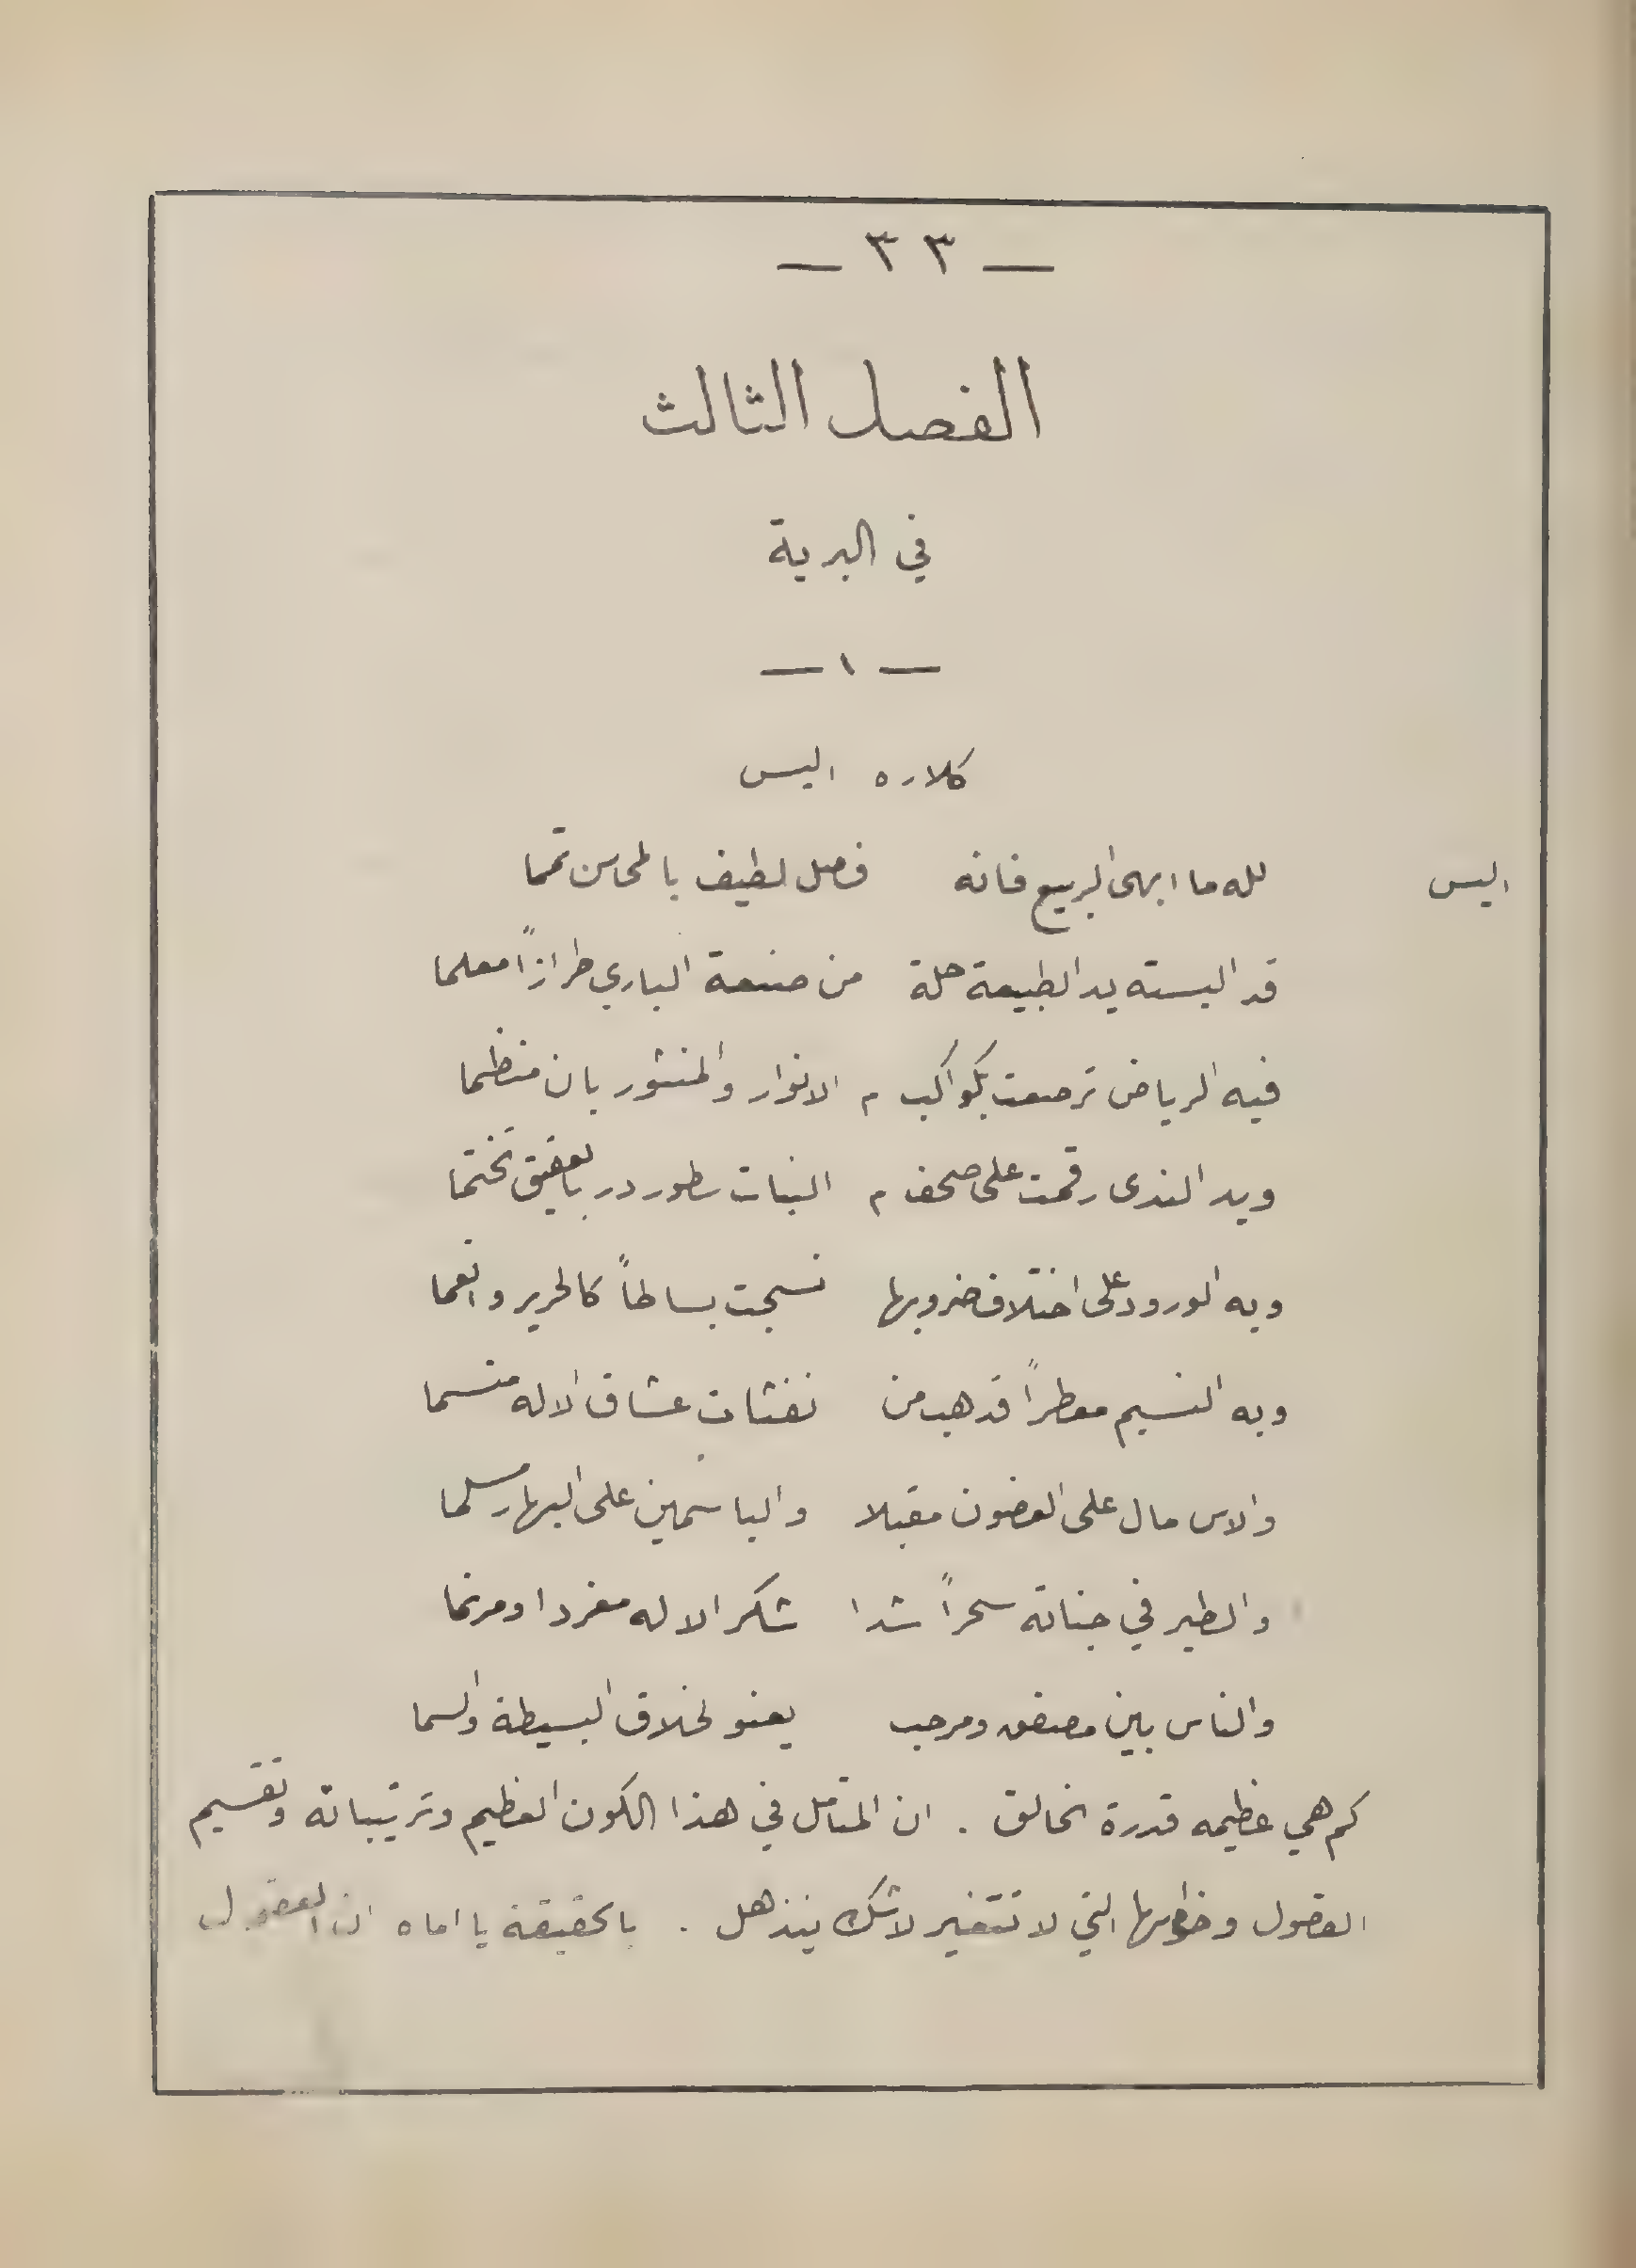 — ٣٣ —
الفصل الثالث
في البرية
— ١ —
كلاره اليس
اليس لله ما ابهى الربيع فانه فصل لطيف بالمحاسن تمما
قد البسته يد الطبيعة حلة من صنعة الباري طرازاً معلما
فيه الرياض ترصعت بكواكب م الانوار والمنثور بان منظما
ويد الندى رقمت على صحف م النبات سطور در بالعقيق تختما
وبه الورود على اختلاف ضروبها نسجت بساطاً كالحرير وانعما
وبه النسيم معطراً قد هب من نفثات عشاق الاله منسما
والاس مال على الغصون مقبلا والياسمين على البهار مسلما
والطير في جناته سحراً شدا شكر الاله مغردا ومرنما
والناس بين مصفق ومرحب يعنو لخلاق البسيطة والسما
كم هي عظيمه قدرة الخالق . ان المتأمل في هذا الكون العظيم وترتيباته وتقسيم
الفصول وخواصها التي لا تتغير لا شك ينذهل . بالحقيقة يا اماه ان